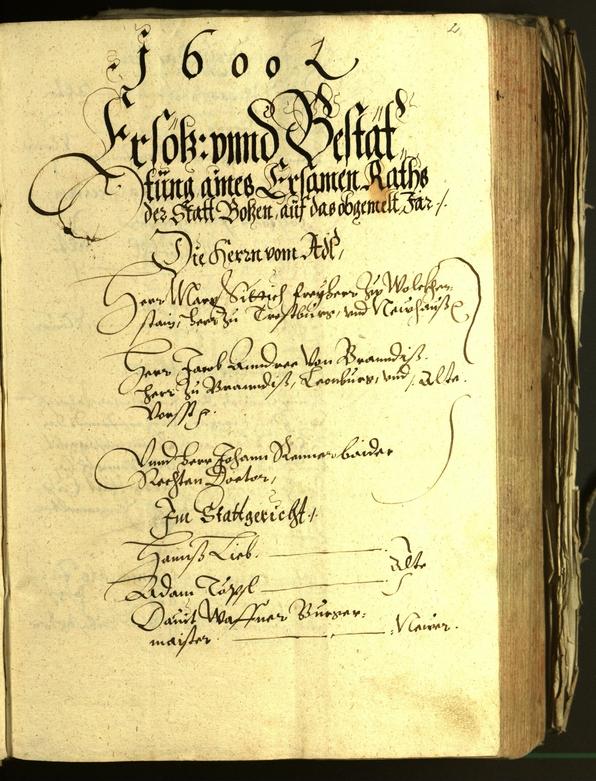 2
1600 2
Ersötz: vnnd Bestät„
ttung aines Ersamen Raths
der Statt Botzen, auf das obgemelt Jar /.
Die Herrn vom Adl,
Herr Marx Sittich freyherr zu Wolckhen„
stain, herr zu Trostburg, vnd Newhauß
Herr Jacob Anndree von Branndiß.
herr zu Branndiß, Leonburg, vnd Alte.
Vorsst
Vnnd herr Johann Reiner baider
Rechten Doctor,
Im Stattgericht /.
Hannß Lieb. Alte
Adam Töpl
Dauit Waffner Burger„
maister. Newer.